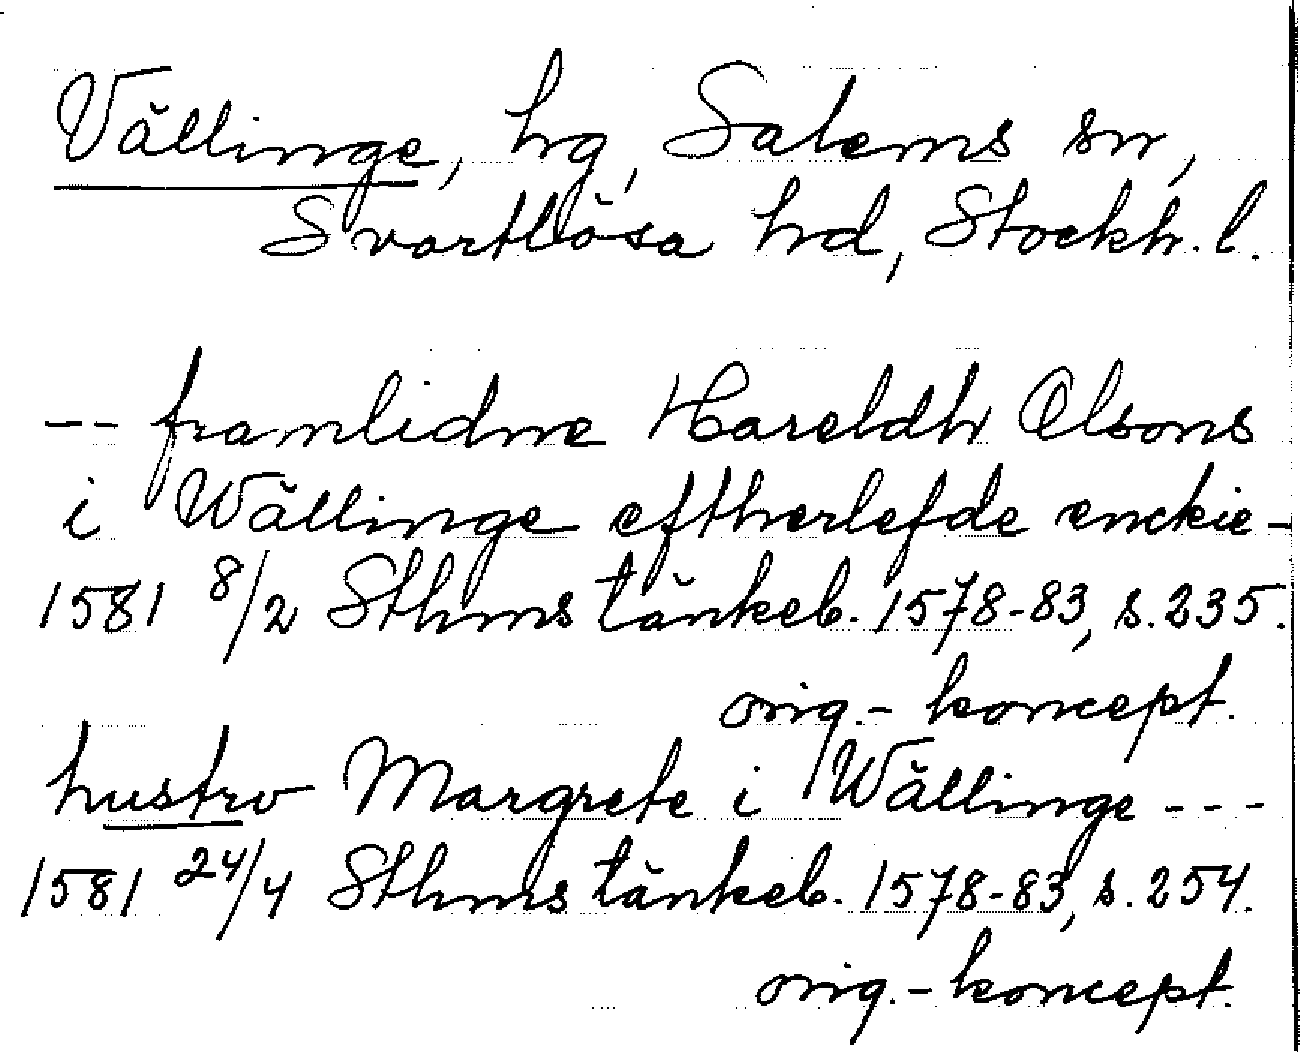 Vällinge, hg, Salems sn,
Svartlösa hd, Stockh. l.
-- framlidne Hareldh Olsons
i Wällinge eftherlefde enckie -
1581 8/2 Sthms tänkeb. 1578-83, s. 235.
orig.- koncept.
hustrv Margrete i Wällinge ---
1581 24/4 Sthms tänkeb. 1578-83, s. 254.
orig.- koncept.